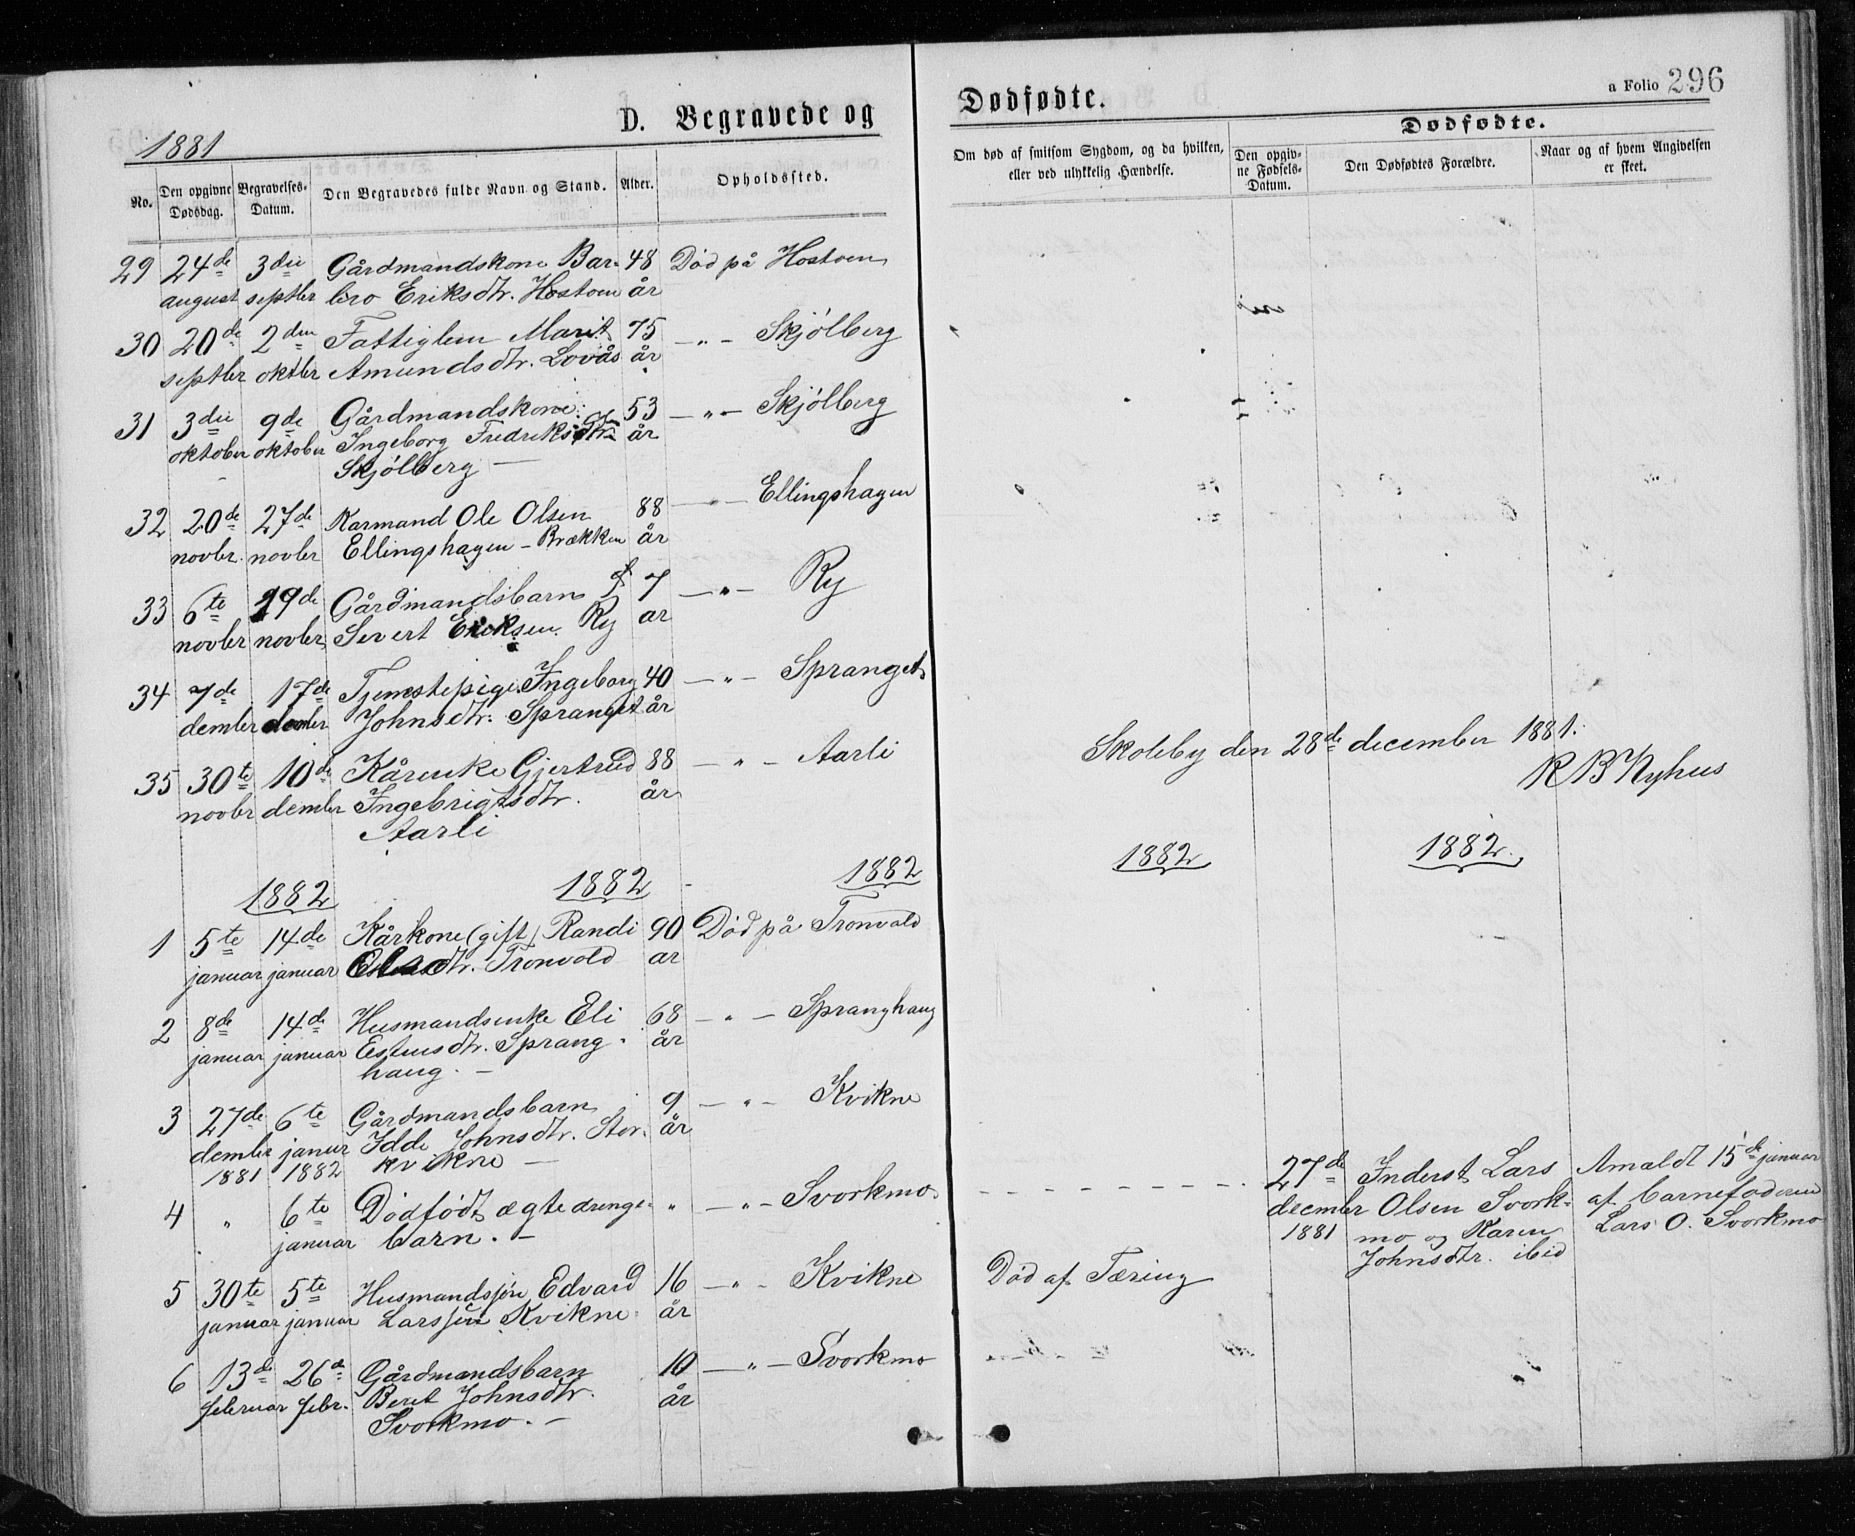 1881
D. Begravede og Dødfødte.
a Folio 296
No.
Den opgivne Dødsdag.
Begravelses-Datum.
Den Begravedes fulde Navn og Stand.
Alder.
Opholdssted.
Om død af smitsom Sygdom, og da hvilken, eller ved ulykkelig Hændelse.
Dødfødte.
Den opgiv-ne Fødsels-Datum.
Den Dødfødtes Forældre.
Naar og af hvem Angivelsen er skeet.
29 24de 3die Gårdmandskone Bar- 48 Død på Hostoen
august septbr bro Eriksdtr. Hostoen år
30 20de 2den Fattiglem Marit 75 — " — Skjølberg
septbr oktbr Amundsdtr. Lovås år
31 3die 9de Gårdmandskone 53 — " — Skjølberg
oktober oktober Ingeborg Fredriksdtr. år
Skjølberg —
32 20de 27de Karmand Ole Olsen 88 — " — Ellingshagen
novbr. novbr Ellingshagen - Brækken år
33 6te 19de Gårdmandsbarn 7 — " — Ry
novbr novbr Sivert Eriksen Ry ar
34 7de 17de Tjenstepige Ingeborg 40 — " — Spranget
dember dember Johnsdtr. Spranget år
35 30te 10de Kårenke Gjertrud 88 — " — Aarli
novbr dember Ingebrigtsdtr. år
Aarli
Skoleby den 28de december 1881.
R B Nyhus
1882 1882 1882 1882 1882
1 5te 14de Kårkone (gift) Randi 90 Død på Tronvold
januar januar Olsdtr. Tronvold ar
2 8de 14de Husmandsenke Eli 68 — " — Spranghaug
januar januar Estensdtr. Sprang- år
haug. —
3 27de 6te Gårdmandsbarn 9 — " — Kvikne
dember januar Idde Johnsdtr. Stor- år
1881 1882 kvikne —
4 " 6te Dødfødt ægte drenge- " — " — Svorkmo.
januar barn. —
27de Inderst Lars Anmeldt 15de januar
decmber Olsen Svork- af barnefaderen
1881 mo og Karen Lars O. Svorkmo
Johnsdtr. ibid
5 30te 5te Husmandssøn Edvard 16 — " — Kvikne Død af Tæring
januar januar Larssen Kvikne. år
6 13de 26de Gårdmandsbarn 10 — " — Svorkmo
februar febr. Beret Johnsdtr. år
Svorkmo. —